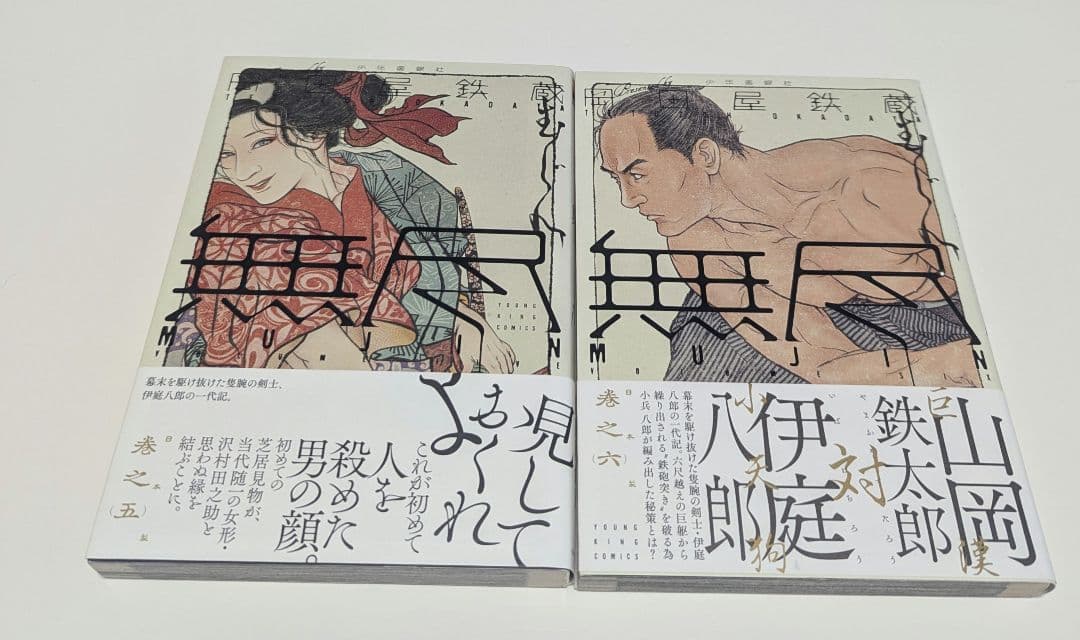 少年画報社
岡田屋鉄蔵
むじん
無尽
MUJIN
YOUNG
KING
COMICS
幕末を駆け抜けた隻腕の剣士、
伊庭八郎の一代記。
見して
おくれ
よ
これが初めて
人を
殺めた
男の顔。
初めての
芝居見物が、
当代随一の女形・
沢村田之助と
思わぬ縁を
結ぶことに。
巻之五
日本製
少年画報社
岡田屋鉄蔵
むじん
無尽
MUJIN
巨漢
山岡
鉄太郎
やまおか
てつたろう
対
伊庭
八郎
いば
はちろう
小天狗
幕末を駆け抜けた隻腕の剣士・伊庭
八郎の一代記。六尺越えの巨躯から
繰り出される“鉄砲突き”を破る為
小兵八郎が編み出した秘策とは?
巻之六
日本製
YOUNG
KING
COMICS